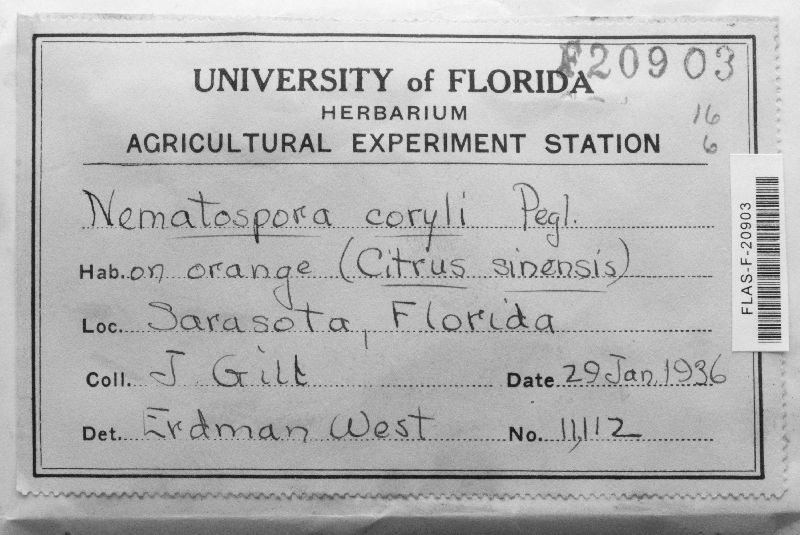 F20903
UNIVERSITY of FLORIDA
HERBARIUM
16
AGRICULTURAL EXPERIMENT STATION
6
Nematospora coryli Pegl.
Hab. on orange (Citrus sinensis)
Loc. Sarasota, Florida
Coll. J Gill Date 29 Jan. 1936
Det. Erdman West No. 11,112
FLAS-F-20903